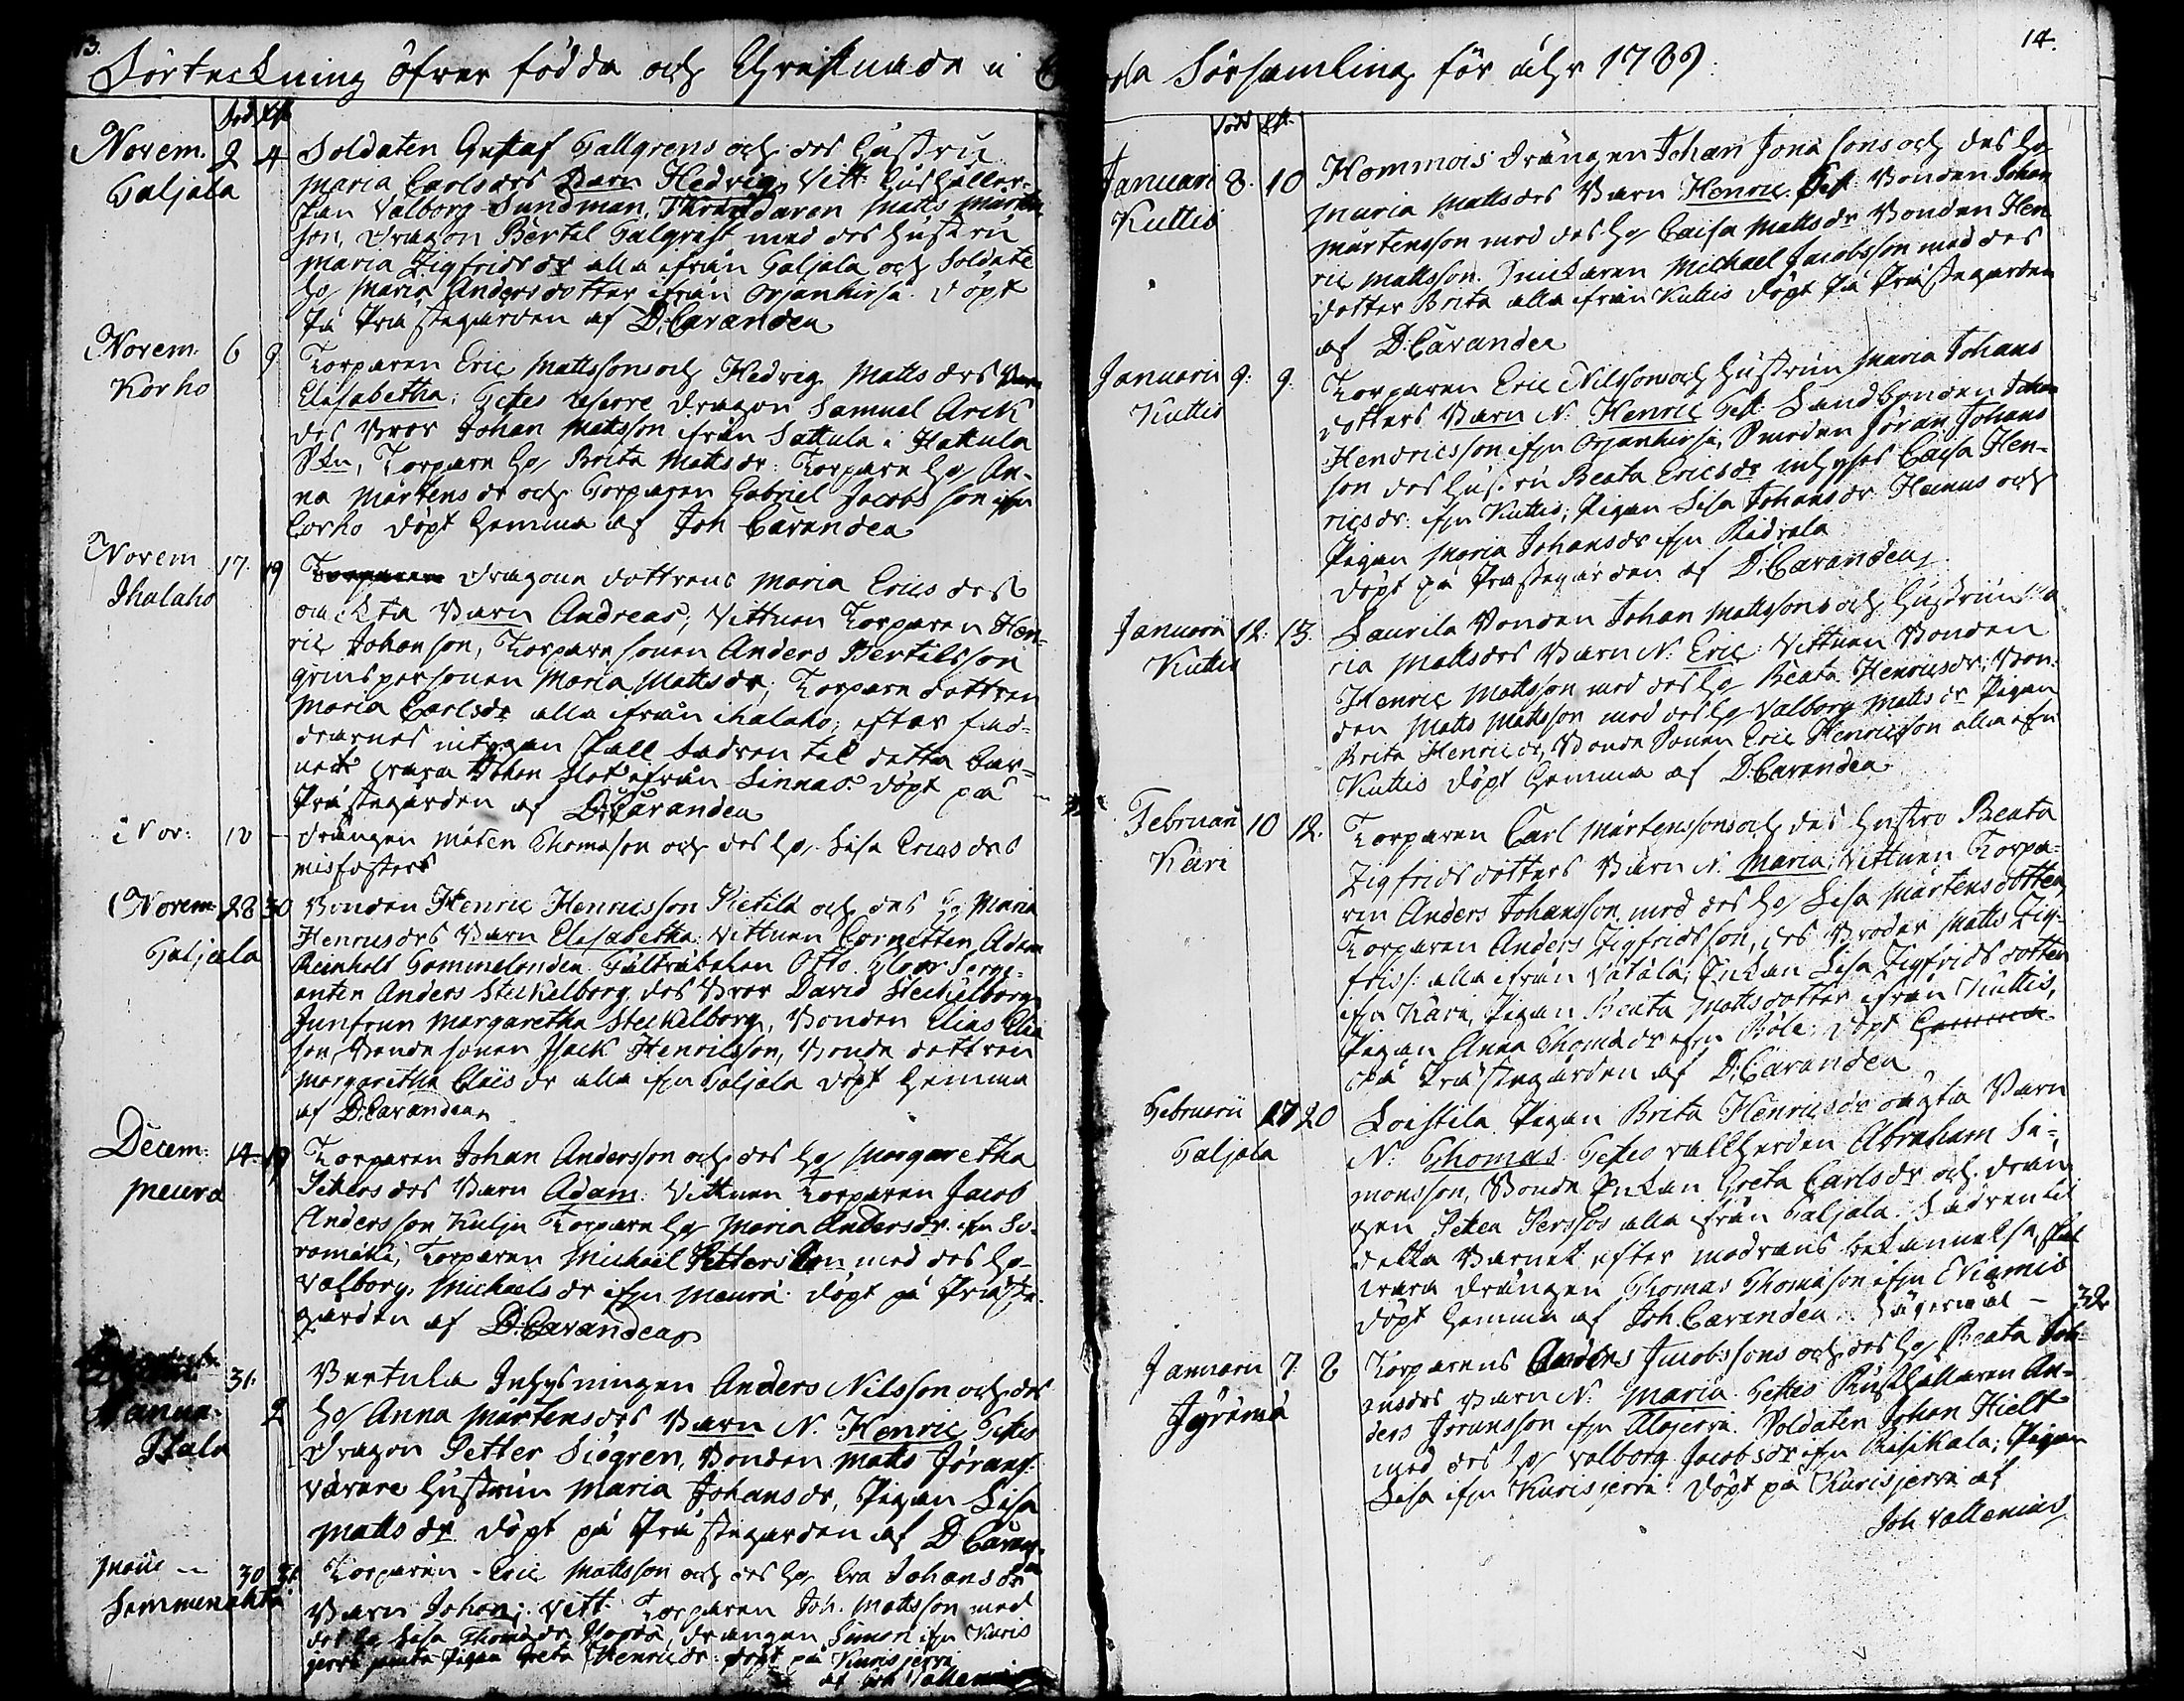 13.
Förteckning öfver födda och Christnade i
Född Xst
Novem. 2 4 Soldaten Gustaf Tallgrens och des hustru
Taljala Maria Carlsdrs Barn Hedvig, Vitt: hushåller-
skan Valborg Sundman, Matts Mårten
son, Dragon Bertel Talqvist med des hustru
Maria Zigfridsdr alla ifrån Taljala och Soldats
h. Maria Andersdotter ifrån Orjanhirfa. döpt
på Prästegården af D: Cavander
Novem. 6 9 Torparen Eric Mattssons och Hedvig Mattsdrs Barn
Korho Elisabetha: Testes Dragon Samuel Arck
des Bror Johan Mattsson ifrån Sattula i Hattula
Skn, Torpare h. Brita Mattsdr: Torpare h. An-
na Mårtensdr och Torparen Gabriel Jacobsson ifrn
Corho döpt hemma af Joh Cavander
Novem 17. 19 Torparen Dragone dottrens Maria Ericsdrs
Ihalaho oächta Barn Andreas; Vittnen Torparen Hen-
ric Johanson, Torpare sonen Anders Bertilsson
qvinspersonen Maria Mattsdr; Torpare dottren
Maria Carlsdr alla ifrån ihalaho; efter fad-
drarnes intygan skall fadren til detta bar-
net vara Johan Slot ifrån Linnais. döpt på
Prästegården af D: Cavander
Nov: 18 — Drängen Måten Thomason och des h. Lisa Ericsdrs
misfoster
Novem 28 30 Bonden Henric Henricsson Pietilä och des h. Maria
Taljala Henricsdrs Barn Elisabetha: Vittnen Cornetten Adam
Reinholt Tammelander. Fältväbelen Otto Serge-
anten Anders Steckelborg, des Bror David Steckelborg
Junfrun Margaretha Steckelborg, Bonden Elias Elia
son, Bonde sonen Isack Henricsson, Bonde dottren
Margaretha Eliæ dr alla ifrn Taljala döpt hemma
af D: Cavander
Decem: 14. 19 Torparen Johan Andersson och des h. Margaretha
Meura Petersdrs Barn Adam: Vittnen Torparen Jacob
Andersson Kulju Torpare h. Maria Andersdr ifrn So-
romäki, Torparen Michael Pettersson med des h.
Valborg Michaelsdr ifrn Meura. döpt på Präste-
gården af D: Cavander
31. Vertula Inhysningen Anders Nilsson och des
Janua. 2 h. Anna Mårtensdrs Barn N. Henric Testes
Ittala Dragon Petter Siögren, Bonden Matts Jörans
vävare hustrun Maria Johansdr, Pigan Lisa
Mattsdr döpt på Prästegården af D Cavan-
der
Maii — 30 31 Torparen - Eric Mattsson och des h. Eva Johansdr
Sommenahta Barn Johan; Vitt. Torparen Joh. Mattsson med
des h. Lisa Thomædr Drängen Simon ifrn Kuris
jervi samt Pigan Greta Henricsdr: döpt på Kurisjervi
af Joh Vallenius
14.
la Församling för åhr 1789:
Född Xst.
Januari 8. 10 Hommois drängen Johan Jonasons och des h.
Kuttis Maria Mattsdrs Barn Henric. Test: Bonden Johan
Mårtensson med des h. Caisa Mattsdr Bonden Hen
ric Mattsson. Snickaren Michael Jacobsson med des
dotter Brita alla ifrån Kuttis döpt på Prästegården
af D: Cavander
Januarii 9. 9. Torparen Eric Nilssons och hustrun Maria Johans
Kuttis dotters Barn N: Henric Test: Landbonden Johan
Hendricsson ifrn Orjanhirfa, Smeden Jöran Johans
son des hustru Beata Ericsdr inhyses Caisa Hen-
ricsdr: ifrn Kuttis; Pigan Lisa Johansdr Heinus och
Pigan Maria Johansdr ifrn Ridvala
döpt på Prästegården af D: Cavander
Januarii 12: 13. Laurila Bonden Johan Mattssons och hustrun Ma
Kuttis ria Mattsdrs Barn N: Eric: Vittnen Bonden
Henric Mattsson med des h. Beata Henricsdr: Bon-
den Matts Mattsson med des h. Valborg Mattsdr Pigan
Brita Henricsdr, Bonde Sonen Eric Henricsson alla ifrn
Kuttis döpt hemma af D: Cavander
Februari 10 12. Torparen Carl Mårtenssons och des hustro Beata
Kari Zigfridsdotters Barn N: Maria; Vittnen Torpa-
ren Anders Johansson med des h. Lisa Mårtensdotter
Torparen Anders Zigfridsson, des Broder Matts Zig-
frids: alla ifrån Vetälä; Enkan Lisa Zigfridsdotter
ifrn Kari, Pigan Beata Mattsdotter ifrån Kuttis,
Pigan Anna Thomædr ifrn Böle; döpt hemma
på Prästegården af D: Cavander
Februarii 17 20 Loistila Pigan Brita Henricsdr oägta Barn
Taljala N: Thomas: Testes vallherden Abraham Si-
monsson, Bonde Enkan Greta Carlsdr och drän
gen Petter Persson alla ifrån Taljala. Fadren til
detta Barnet efter modrens bekännelse, skal
vara drängen Thomas Thomason ifrn Ekiämis
döpt hemma af Joh Cavander. Lägersmål — 32
Januarii 7. 8 Torparens Anders Jacobssons och des h. Beata Joh-
Jyrämä ansdrs Barn N: Maria Testes Rusthållaren An-
ders Joransson ifrn Alajervi. Soldaten Johan Hielt
med des h. Valborg Jacobsdr ifrn Risikala; Pigan
Lisa ifrn Kurisjervi. döpt på Kurisjervi af
Joh Vallenius